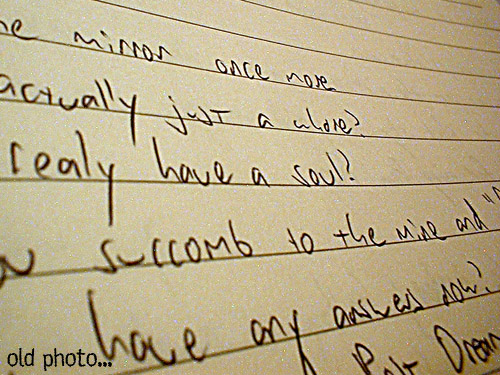 he mirror once more
actually just a whore?
realy have a soul?
succomb to the wine and "
have any answers now?
Dream
old photo...